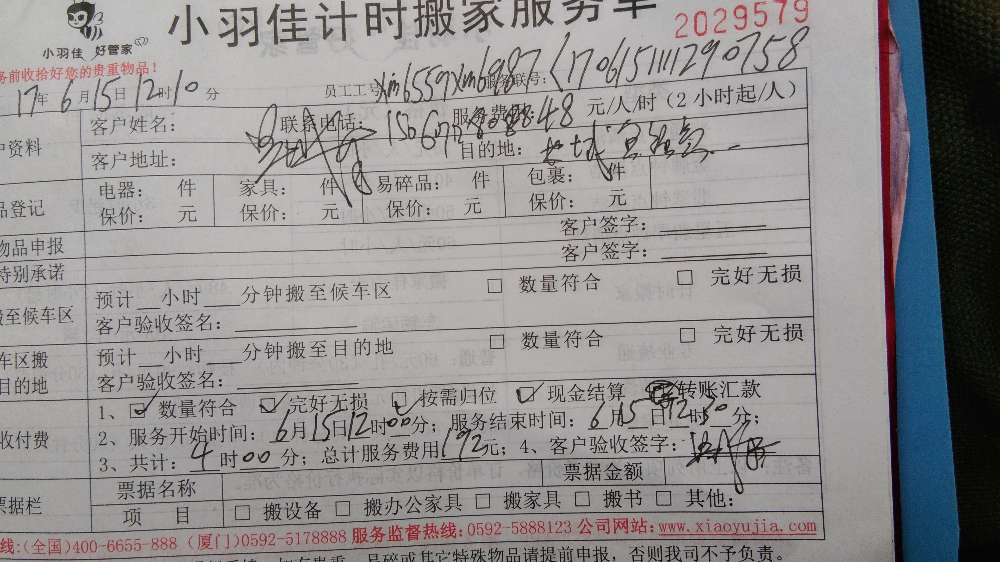 小羽佳计时搬家服务单
2029579
小羽佳 好管家
务前收拾好您的贵重物品！
17年6月15日12时10分 员工工号: xm6559 xm6987 服务联号: 170615111290758
户资料 客户姓名: 联系电话: 服务费用: 48 元/人/时 (2 小时起/人)
客户地址: 目的地:
品登记 电器: 件 家具: 件 易碎品: 件 包裹: 件
保价: 元 保价: 元 保价: 元 保价: 元
物品申报 客户签字:
特别承诺 客户签字:
搬至候车区 预计__小时___分钟搬至候车区 □ 数量符合 □ 完好无损
客户验收签名:
车区搬目的地 预计__小时___分钟搬至目的地 □ 数量符合 □ 完好无损
客户验收签名:
收付费 1、☑ 数量符合 ☑ 完好无损 ☑ 按需归位 ☑ 现金结算 转账汇款
2、服务开始时间: 6月15日12时00分; 服务结束时间: 6月15日12时30分;
3、共计: 4时00分; 总计服务费用192元; 4、客户验收签字:
票据栏 票据名称 票据金额
项 目 □ 搬设备 □ 搬办公家具 □ 搬家具 □ 搬书 □ 其他:
线:(全国)400-6655-888 (厦门)0592-5178888 服务监督热线:0592-5888123 公司网站:www.xiaoyujia.com
易碎或其它特殊物品请提前申报，否则我司不予负责。